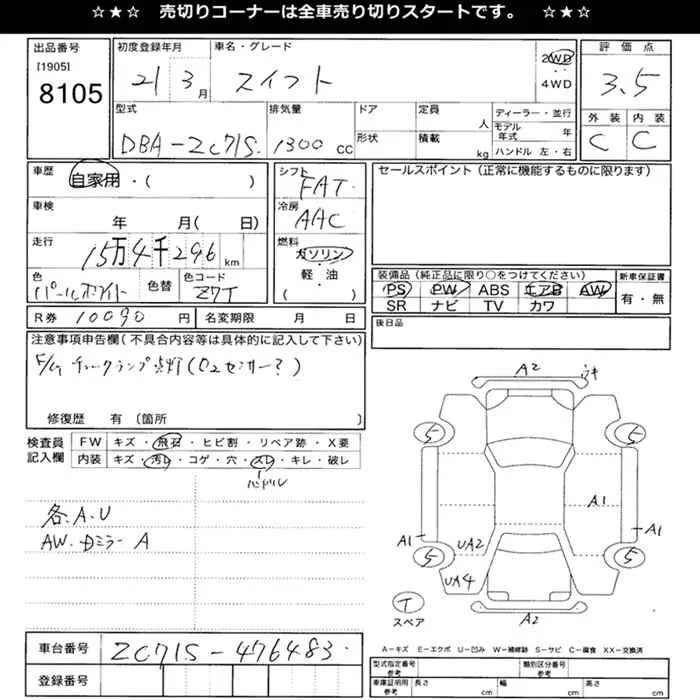 ☆★☆ 売切りコーナーは全車売り切りスタートです。 ☆★☆
出品番号
[1905]
8105
初度登録年月
21 3月
車名・グレード
スイフト
2WD
4WD
評価点
3.5
外装 内装
C C
型式
DBA-ZC71S
排気量
1300 CC
ドア
形状
定員 人
積載 kg
ディーラー・並行
モデル年式 年
ハンドル 左・右
車歴
自家用・( )
車検
年 月( 日)
走行
15万4千296km
色
パールホワイト
色替
色コード
Z7T
シフト
FAT
冷房
AAC
燃料
ガソリン
軽・油
( )
セールスポイント(正常に機能するものに限ります)
装備品(純正品に限り○をつけてください)
PS PW ABS エアB AW
SR ナビ TV カワ
新車保証書
有・無
R券 10090 円
名変期限 月 日
後日品
注意事項申告欄(不具合内容等は具体的に記入して下さい)
チェックランプ点灯(O2センサー?)
修復歴 有〔箇所 〕
検査員記入欄
FW キズ・飛石・ヒビ割・リペア跡・X要
内装 キズ・汚レ・コゲ・穴・スレ・キレ・破レ
ハンドル
各.A.U
AW.Dミラー A
A2
5 5
A1
A1 A1
UA2
5 5
UA4
T
スペア
A2
A-キズ E-エクボ U-凹み W-補修跡 S-サビ C-腐食 XX-交換済
車台番号 ZC71S-476483
登録番号
型式指定番号
参考
類別区分番号
参考
車庫証明用
参考
長さ cm
幅 cm
高さ cm